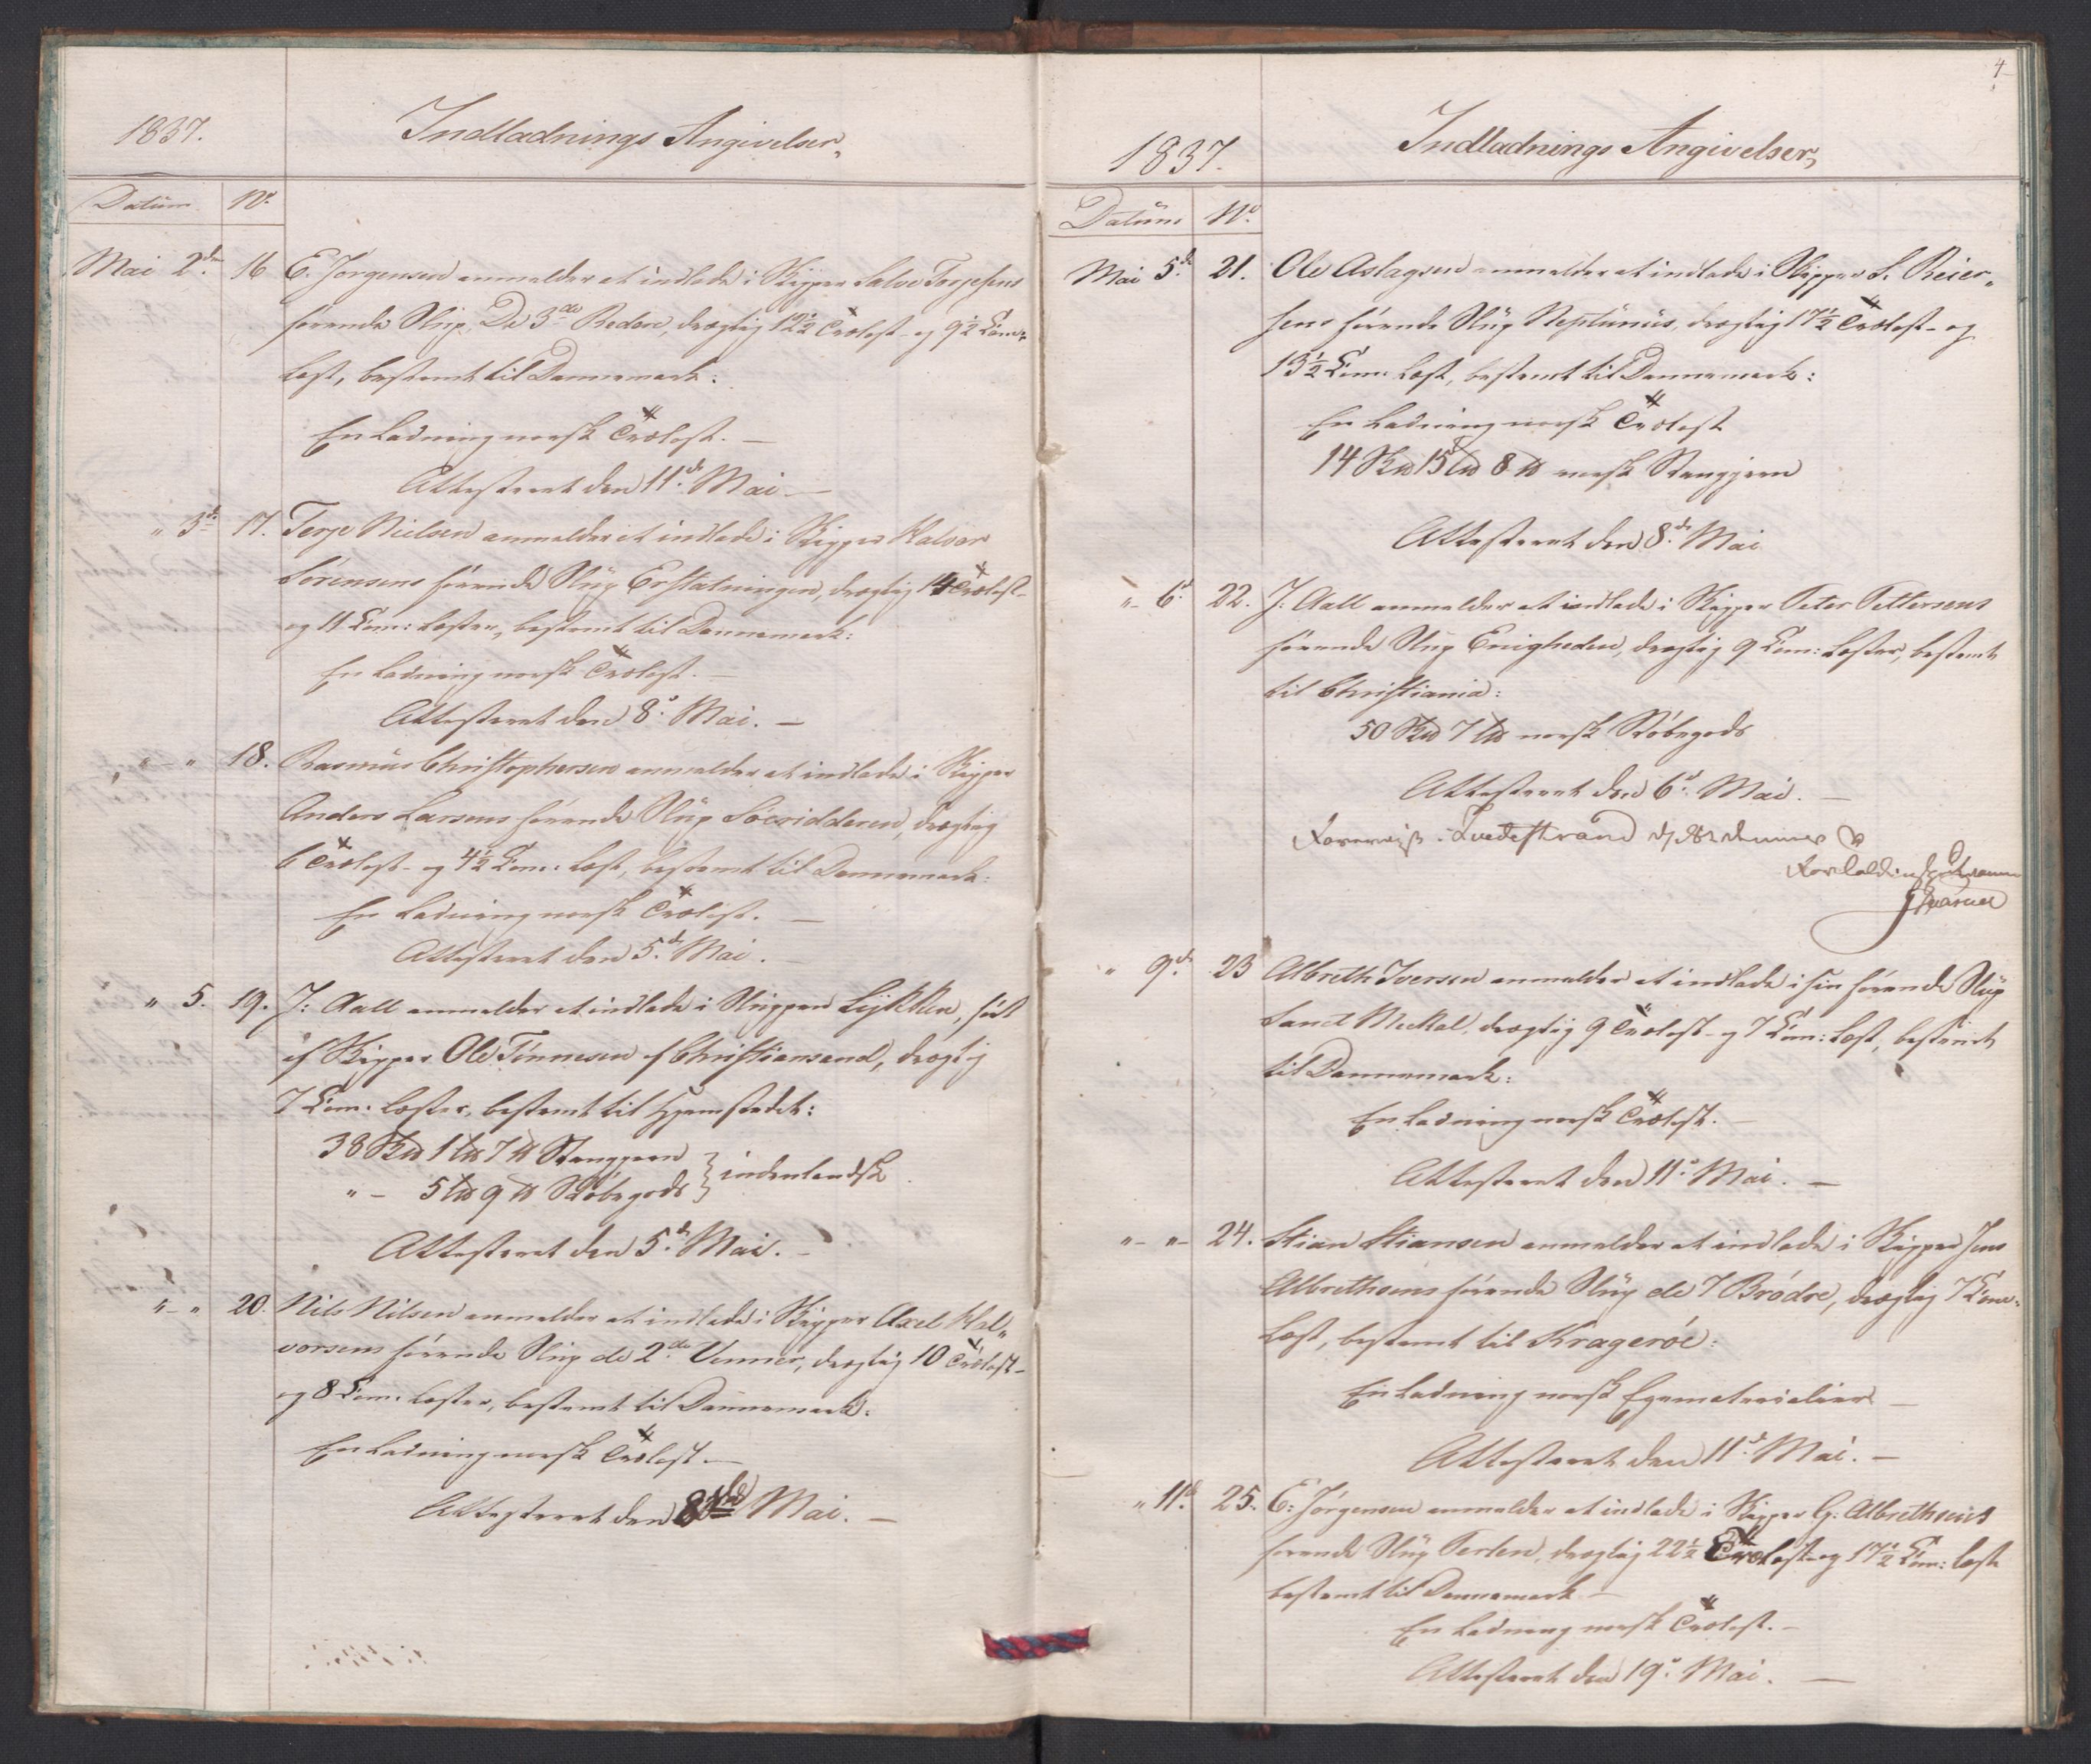 1837.
Indladnings Angivelser,
Datum No
Mai 2de 16 E. Jørgensen anmelder at indlade i Skipper Salve Torjesens
førende Slup, De 3de Brødre, drægtig 12½ Trælast- og 9½ Com:
Læst, bestemt til Dannemark:
En Ladning norsk Trælast. —
Attesteret den 11te Mai —
" 3de 17. Terje Nielsen anmelder at indlade i Skipper Halvor
Sørensens førende Slup Erstatningen, drægtig 14 Trælast-
og 11 Com: Læster, bestemt til Dannemark:
En Ladning norsk Trælast. —
Attesteret den 8de Mai. —
" — " 18. Rasmus Christophersen anmelder at indlade i Skipper
Anders Larsens førende Slup Søeridderen, drægtig
6 Trælast- og 4½ Com: Læst, bestemt til Dannemark:
En Ladning norsk Trælast. —
Attesteret den 5te Mai.
" 5. 19. J: Aall anmelder at indlade i Sluppen Lykken, ført
af Skipper Ole Tønnesen af Christiansand, drægtig
7 Com: Læster, bestemt til Hjemstedet:
38 Sk℔ 1 L℔ 7 ℔ Stangjern
" - 5 L℔ 9 ℔ Støbegods } indenlandsk.
Attesteret den 5te Mai. —
" — " 20. Nils Nilsen anmelder at indlade i Skipper Axel Hal„
vorsens førende Slup de 2de Venner, drægtig 10 Trælast-
og 8 Com: Læster, bestemt til Dannemark:
En Ladning norsk Trælast. —
Attesteret den 8de Mai. —
4
1837.
Indladnings Angivelser,
Datum No.
Mai 5te 21. Ole Aslagsen anmelder at indlade i Skipper S. Reier„
sens førende Slup Neptunus, drægtig 17½ Trælast- og
13½ Com: Læst, bestemt til Dannemark:
En Ladning norsk Trælast
14 Sk℔ 15 L℔ 8 ℔ norsk Stangjern
Attesteret den 8de Mai
" — 6te 22. J: Aall anmelder at indlade i Skipper Peter Pettersens
førende Slup Enigheden, drægtig 9 Com: Læster, bestemt
til Christiania:
50 Sk℔ 7 L℔ norsk Støbegods
Attesteret den 6te Mai. —
Tvedestrand
" 9de 23 Albreth Iversen anmelder at indlade i sin førende Slup
Sanct Meckal, drægtig 9 Trælast- og 7 Com: Læst, bestemt
til Dannemark:
En Ladning norsk Trælast. —
Attesteret den 11te Mai. —
" — " — 24. Stian Stiansen anmelder at indlade i Skipper Jens
Albrethsens førende Slup de 7 Brødre, drægtig 7 Com:
Læst, bestemt til Kragerøe:
En Ladning norsk Egematerialier —
Attesteret den 11te Mai. —
" 11te 25. E: Jørgensen anmelder at indlade i Skipper G: Albrethsens
førende Slup Perlen, drægtig 22½ Trælast- og 17½ Com: Læst
bestemt til Dannemark —
En Ladning norsk Trælast. —
Attesteret den 19de Mai. —